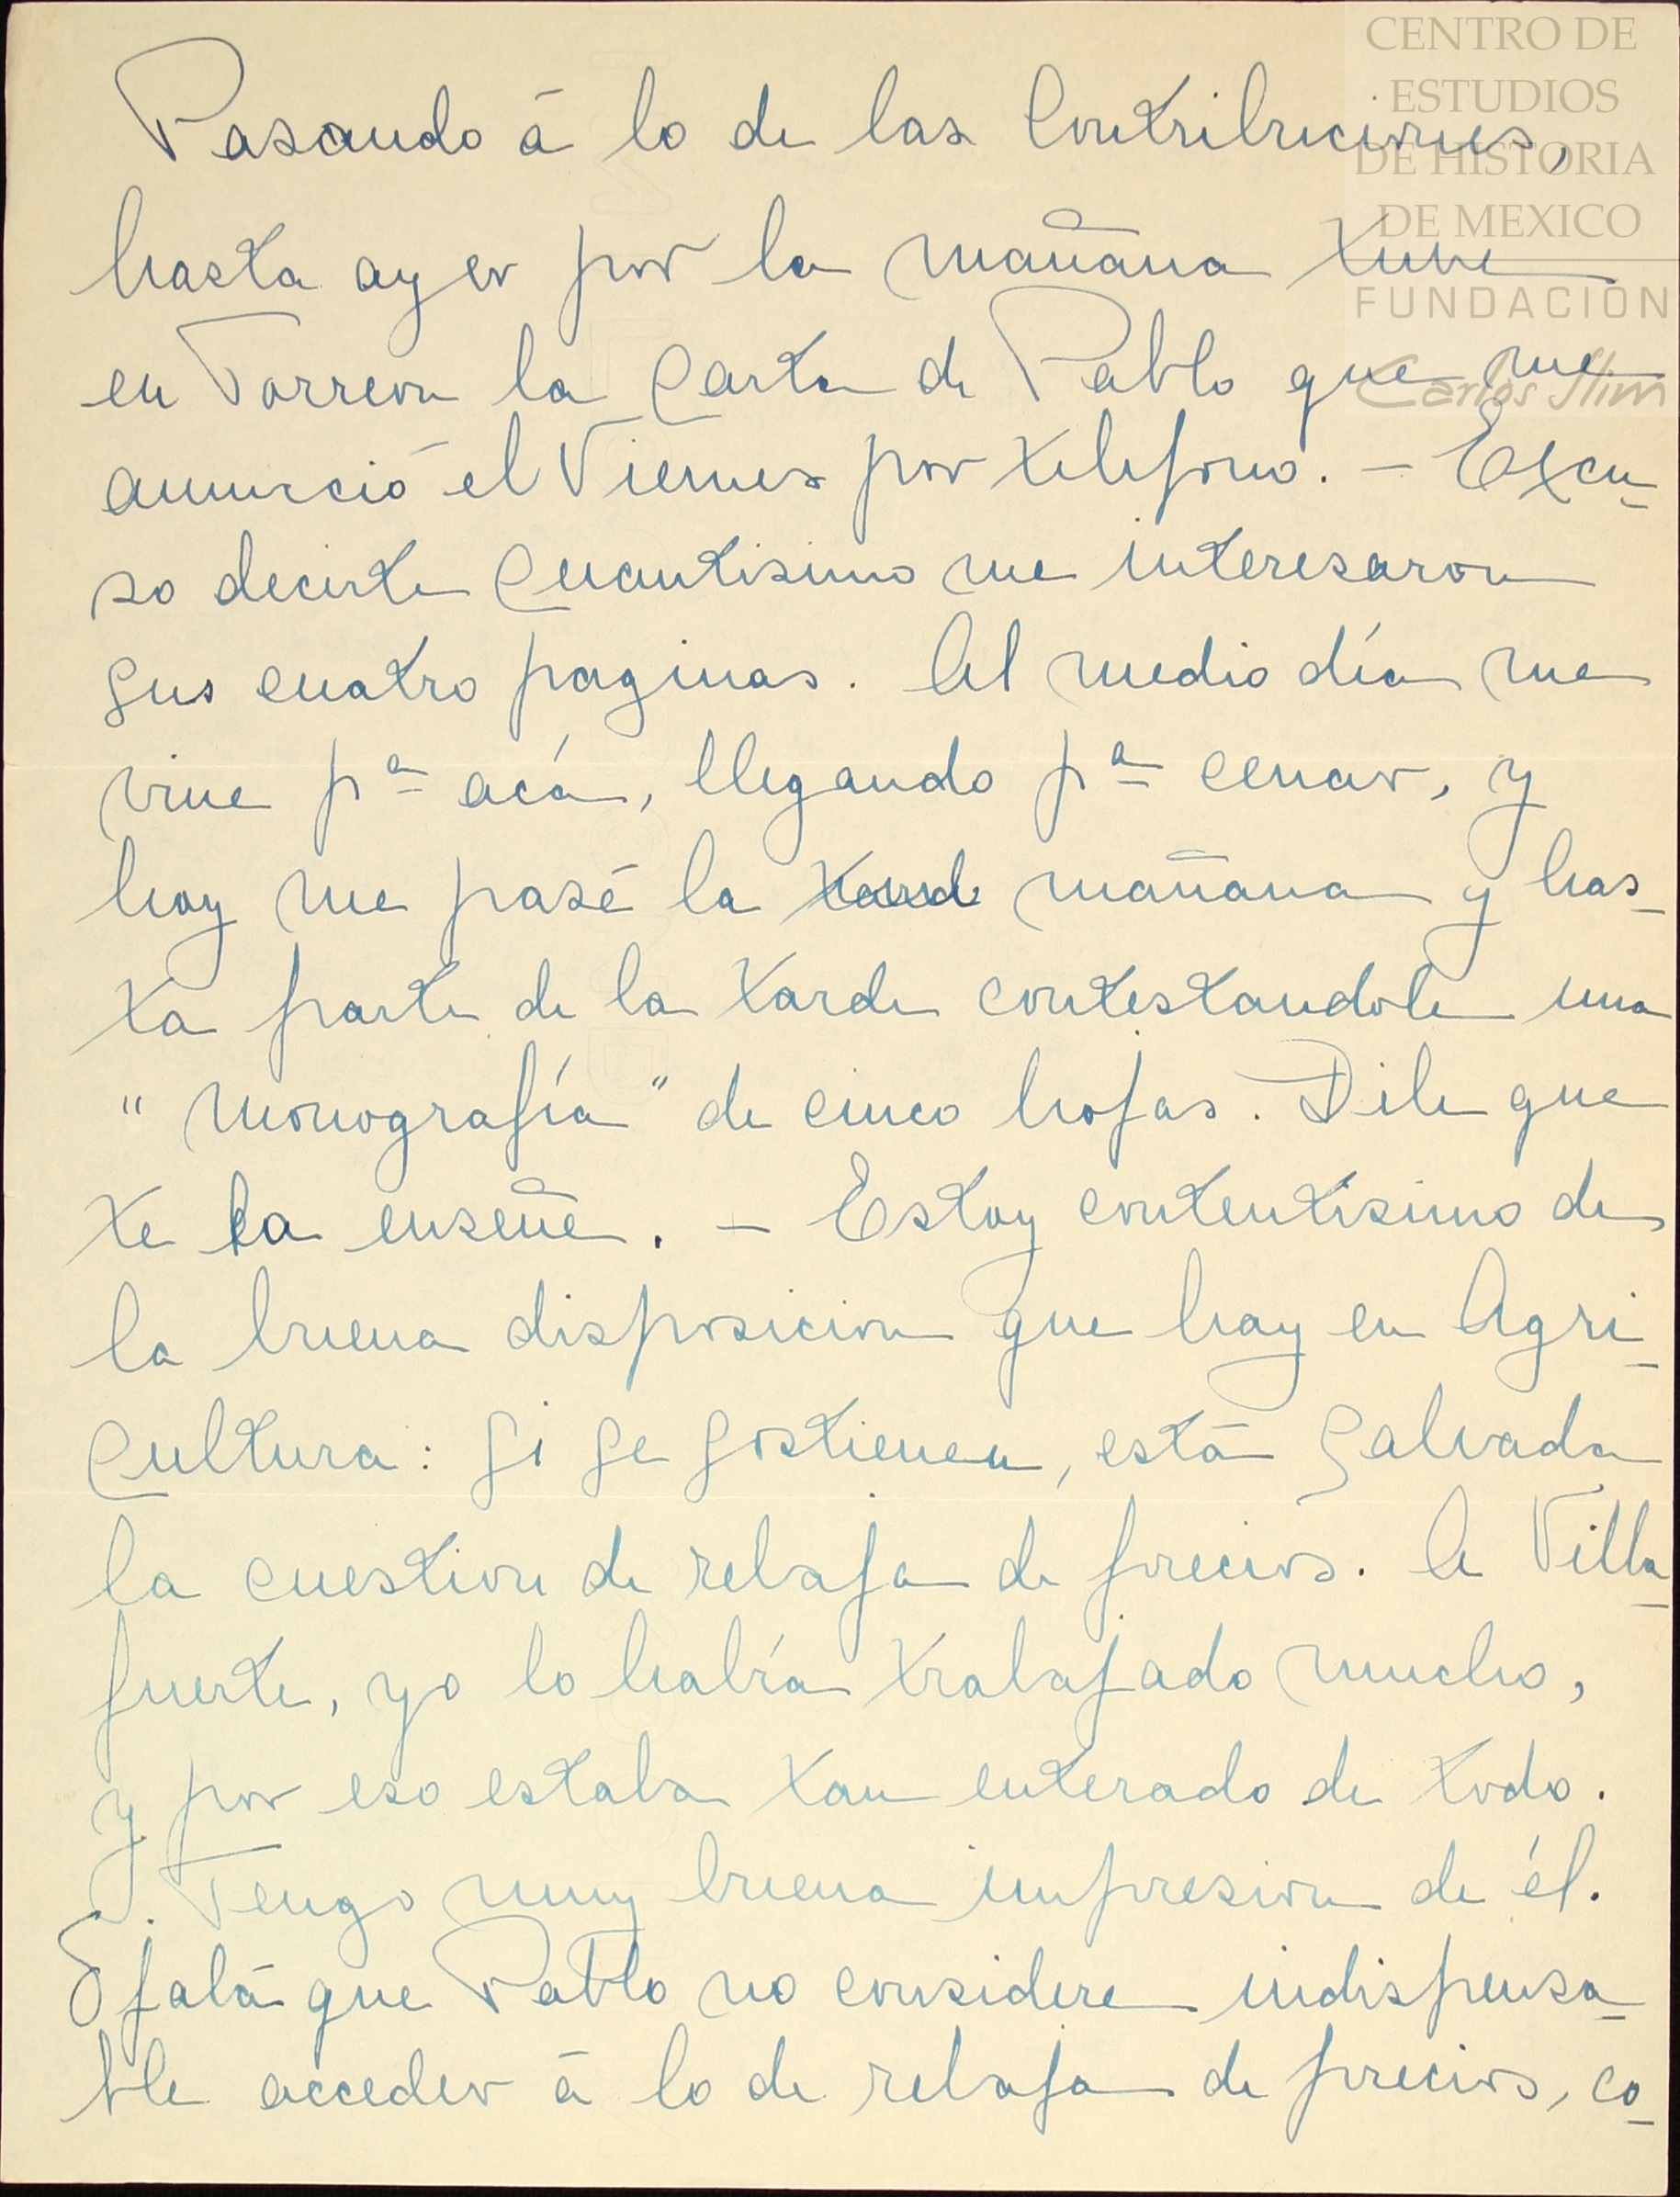 CENTRO DE
ESTUDIOS
DE HISTORIA
DE MEXICO
FUNDACIÓN
Carlos Slim
Pasando á lo de las Contribuciones,
hasta ayer por la mañana tuve
en Torreon la Carta de Pablo que me
anunció el Viernes por telefono. - Excu-
so decirte Cuantisimo me interesaron
sus cuatro paginas. Al medio día me
vine pª acá, llegando pª cenar, y
hoy me pasé la tarde mañana y has-
ta parte de la tarde contestandole una
"monografía" de cinco hojas. Dile que
te la enseñe. - Estoy contentisimo de
la buena disposicion que hay en Agri-
Cultura: si se sostienen, está salvada
la cuestion de rebaja de precios. A Villa-
fuerte, yo lo había trabajado mucho,
y por eso estaba tan enterado de todo.
Tengo muy buena impresion de él.
Ojalá que Pablo no considere indispensa-
ble acceder á lo de rebaja de precios, co-